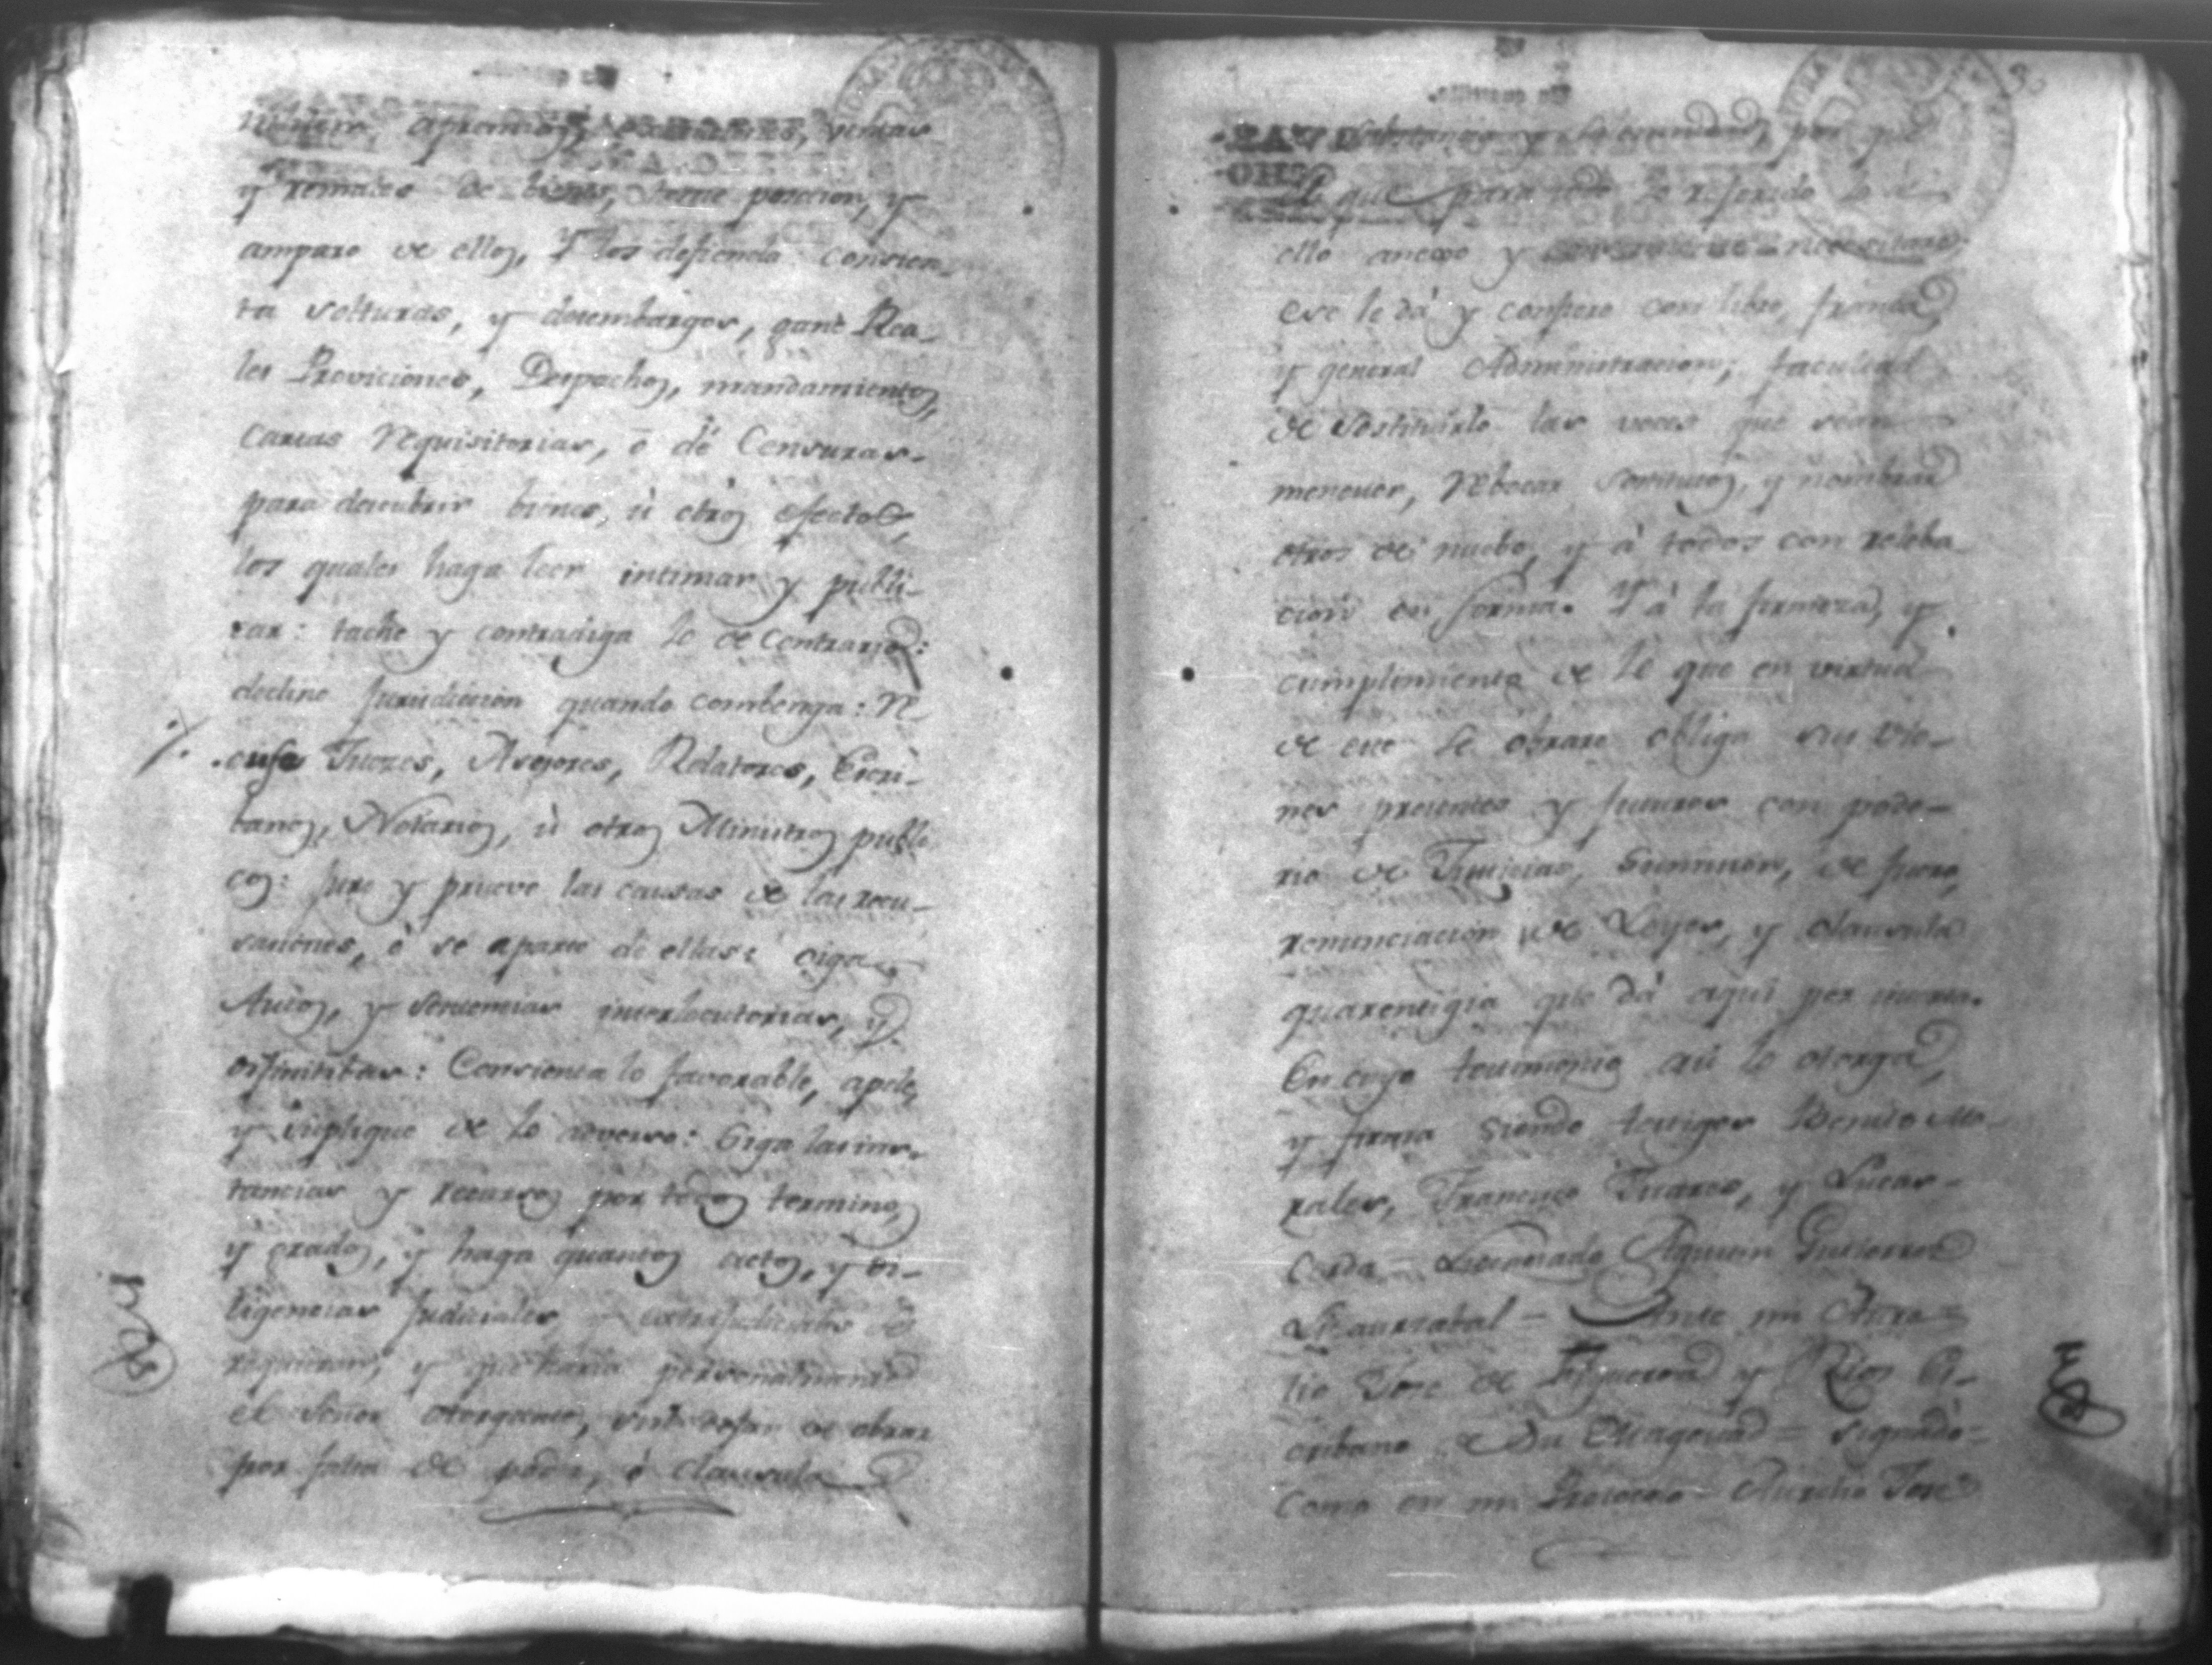 apremios, ventas
y remates de bienes, tome posecion, y
amparo de ellos, Y los defienda: consien-
ta solturas, y desembargos, gane Rea-
les Proviciones, Despachos, mandamientos,
Cartas Requisitorias, ó de Censuras-
para descubrir bienes, ù otros efectos,
los quales haga leer intimar y publi-
car: tache y contradiga lo de contrario:
decline Jurisdiccion quando combenga: Re
cuse Jueces, Asesores, Relatores, Escri-
banos, Notarios, ù otros Ministros publi
cos: jure y prueve las causas de las recu-
saciones, ò se aparte de ellas: oiga
Autos, y Sentencias interlocutorias, y
difinitibas: Consienta lo favorable, apele,
y suplique de lo adverso: Siga las ins-
tancias y recursos por todos terminos,
y grados, y haga quantos actos, y di-
ligencias Judiciales, y extrajudiciales se
requieran, y que haria personalmente
el Señor otorgante, sin dejar de obrar
por falta de poder, ò clausula
substancia y
el que para todo lo referido lo à
ello anexo y necesitare
ese le dá y confiere con libre, franca,
y general Administracion; facultad
de sostituirlo las veces que sean
menester, Rebocar sostitutos, y nombrar
otros de nuebo, y á todos con releba
cion en forma. Y à la firmeza, y
cumplimiento de lo que en virtud
de este se obrare obliga sus bie-
nes presentes y futuros con pode-
rio de Justicias, Sumision, de fuero,
renunciacion de Leyes, y clausula
quarentigia que dá aqui por inserta.
En cuyo testimonio asi lo otorga,
y firma siendo testigos Benito Mo-
rales, Francisco Juares, y Lucas-
Cerda = Licenciado Agustin Gutierrez
Lisaurzabal = Ante mi Aure-
lio Jose de Figueroa y Rios Es-
cribano de Su Magestad = Signado=
Como en mi Protocolo = Aurelio Jose